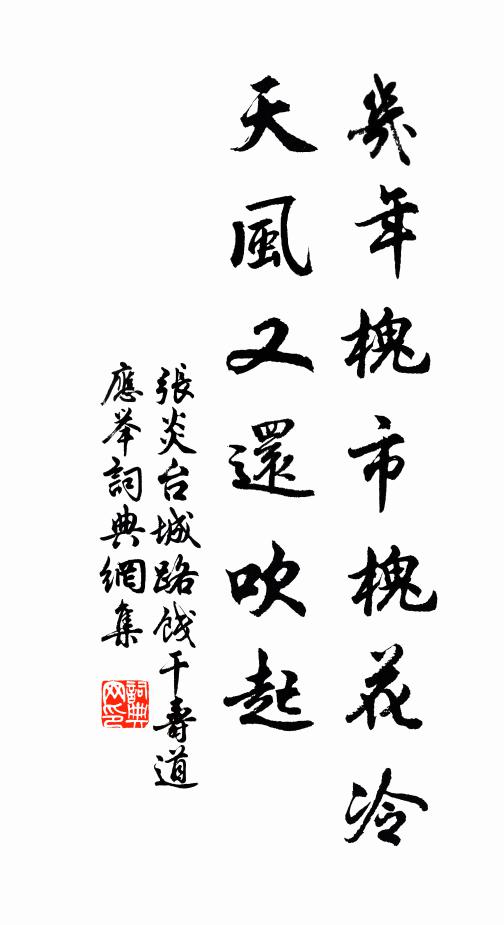 幾年槐市槐花冷
天風又還吹起
張炎台城路餞干壽道
應举詞典網集
詞典
网印